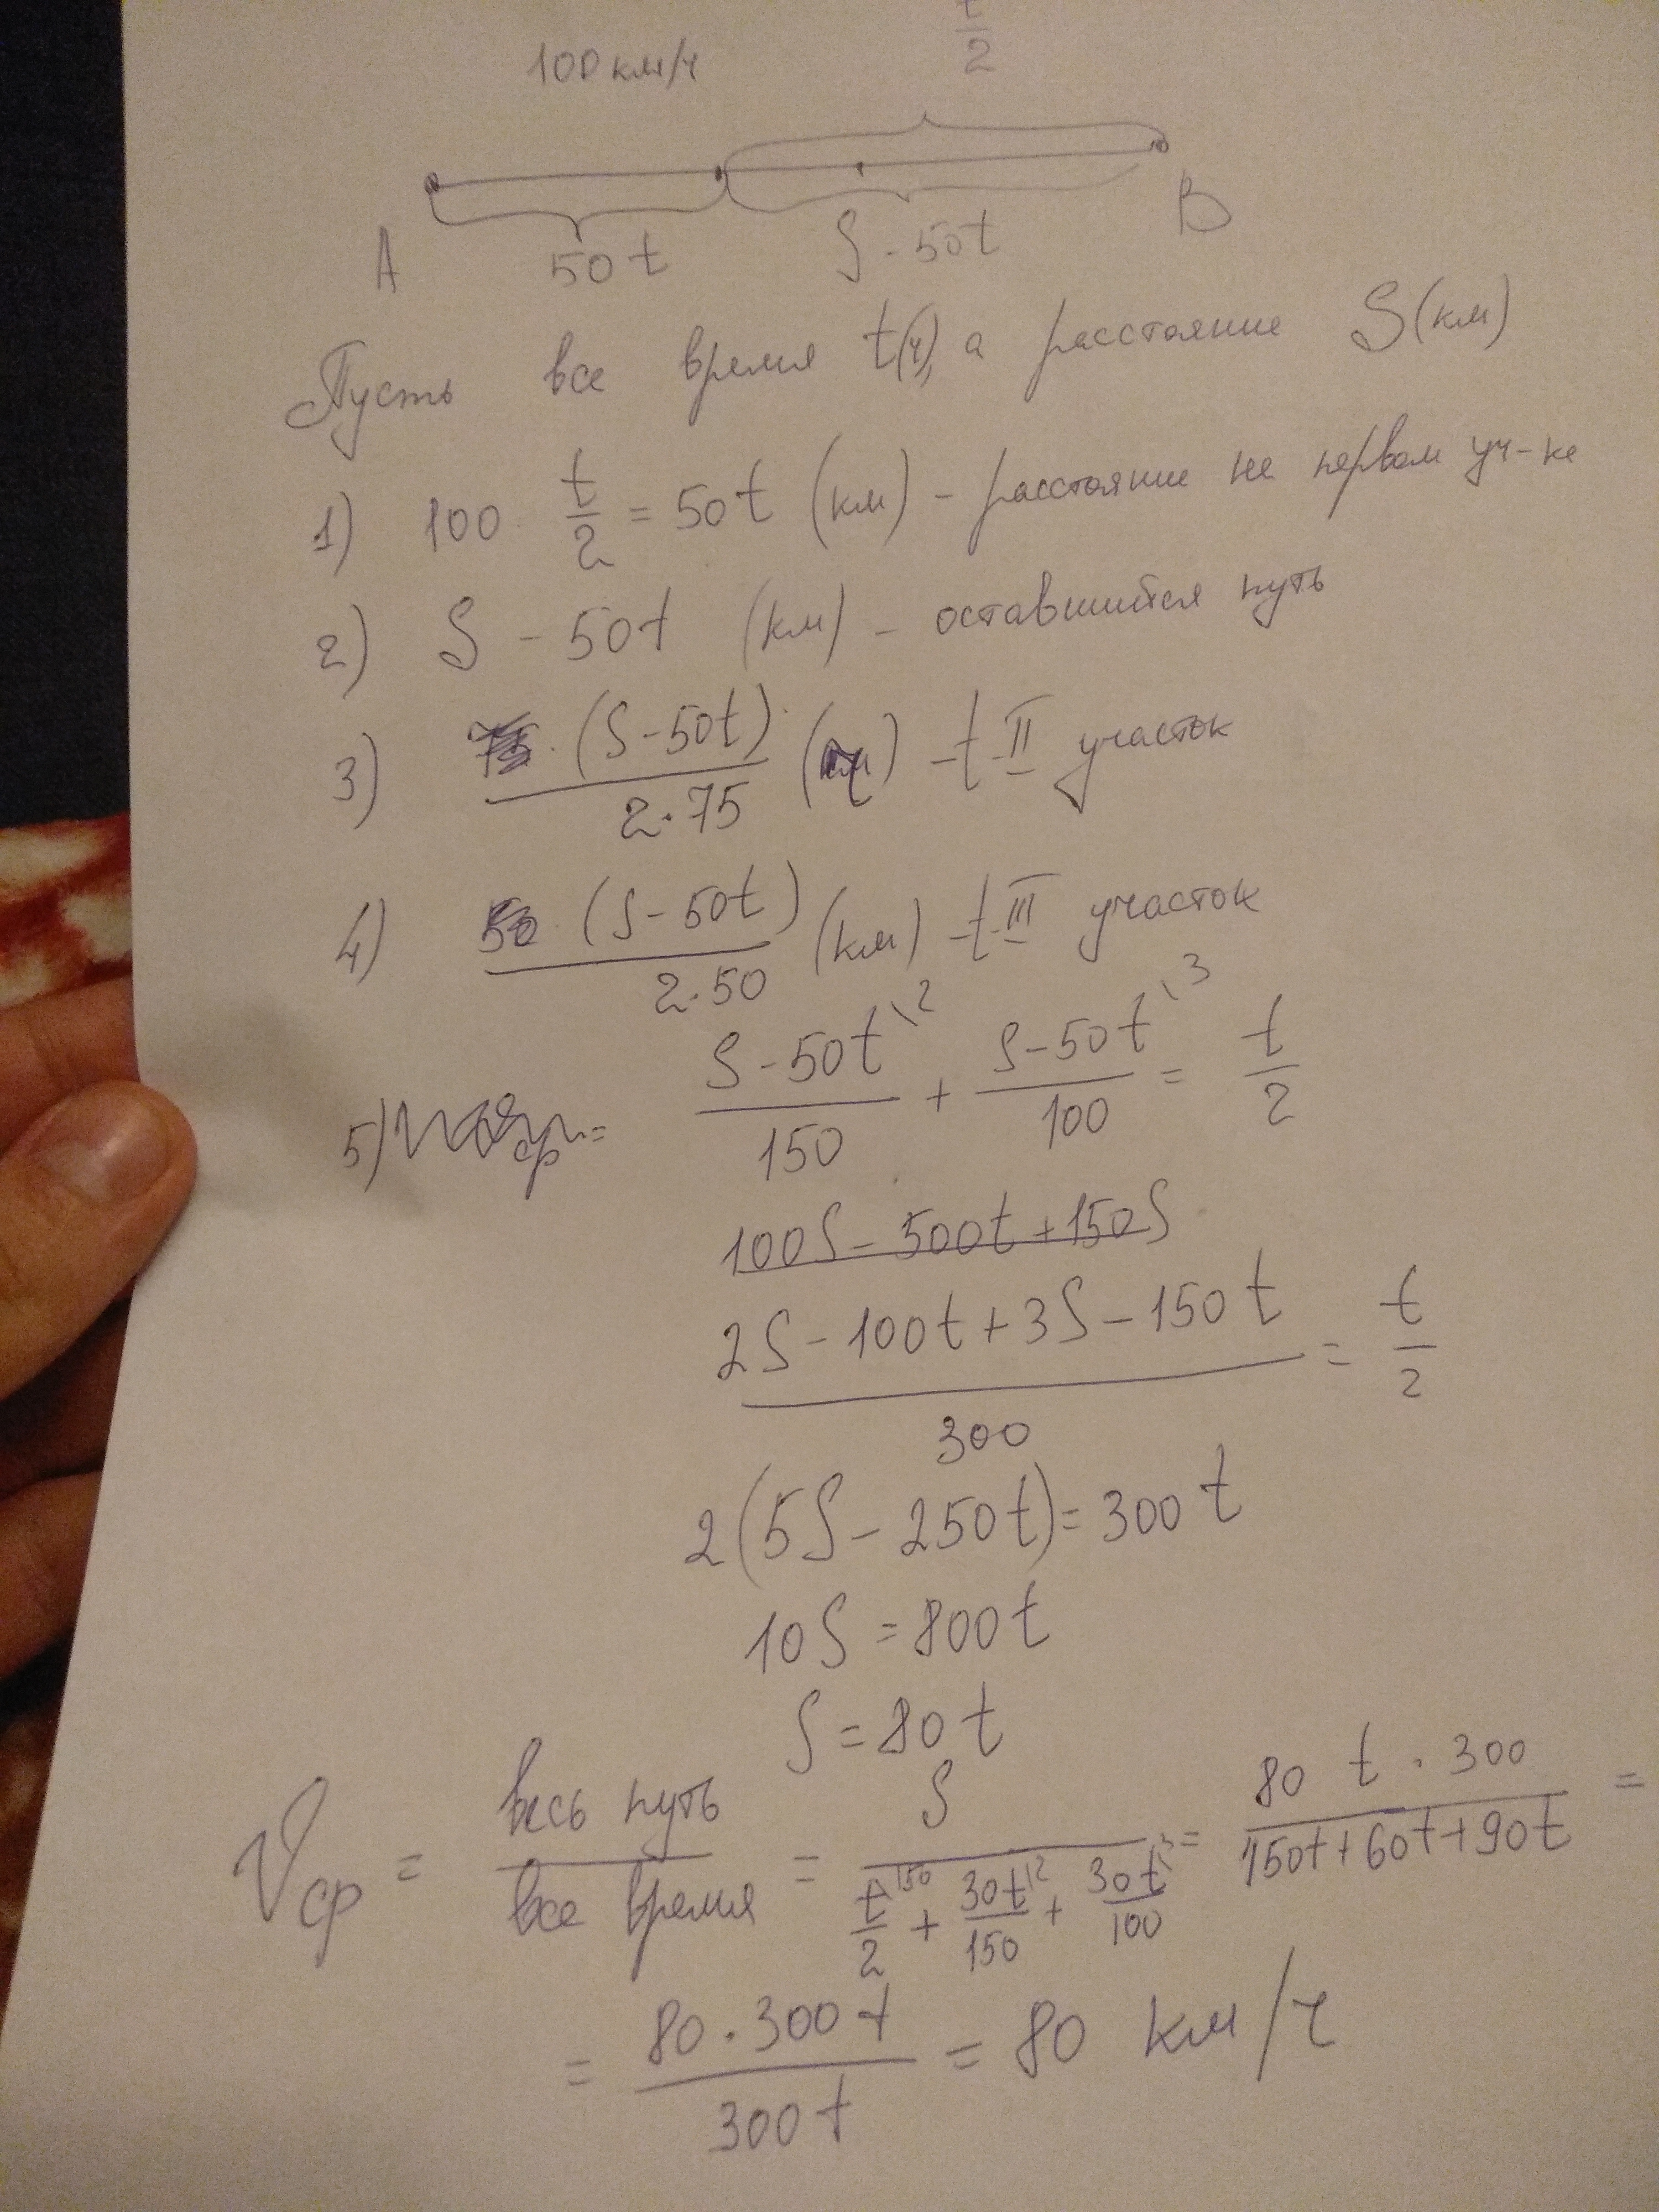 100 км/ч t/2
A 50t S - 50t B
Пусть все время t(ч), а расстояние S(км)
1) 100 · t/2 = 50t (км) - расстояние не первом уч-ке
2) S - 50t (км) - оставшийся путь
3) (S - 50t)/(2·75) (ч) - t II участок
4) (S - 50t)/(2·50) (км) - t III участок
5) (S - 50t)/150 \2 + (S - 50t)/100 \3 = t/2
100S - 500t + 150S
(2S - 100t + 3S - 150t)/300 = t/2
2(5S - 250t) = 300t
10S = 800t
S = 80t
Vср = весь путь/все время = S/(t/2 \150 + 30t/150 \2 + 30t/100 \3) = 80t · 300/(150t + 60t + 90t) =
= 80 · 300t/300t = 80 км/ч